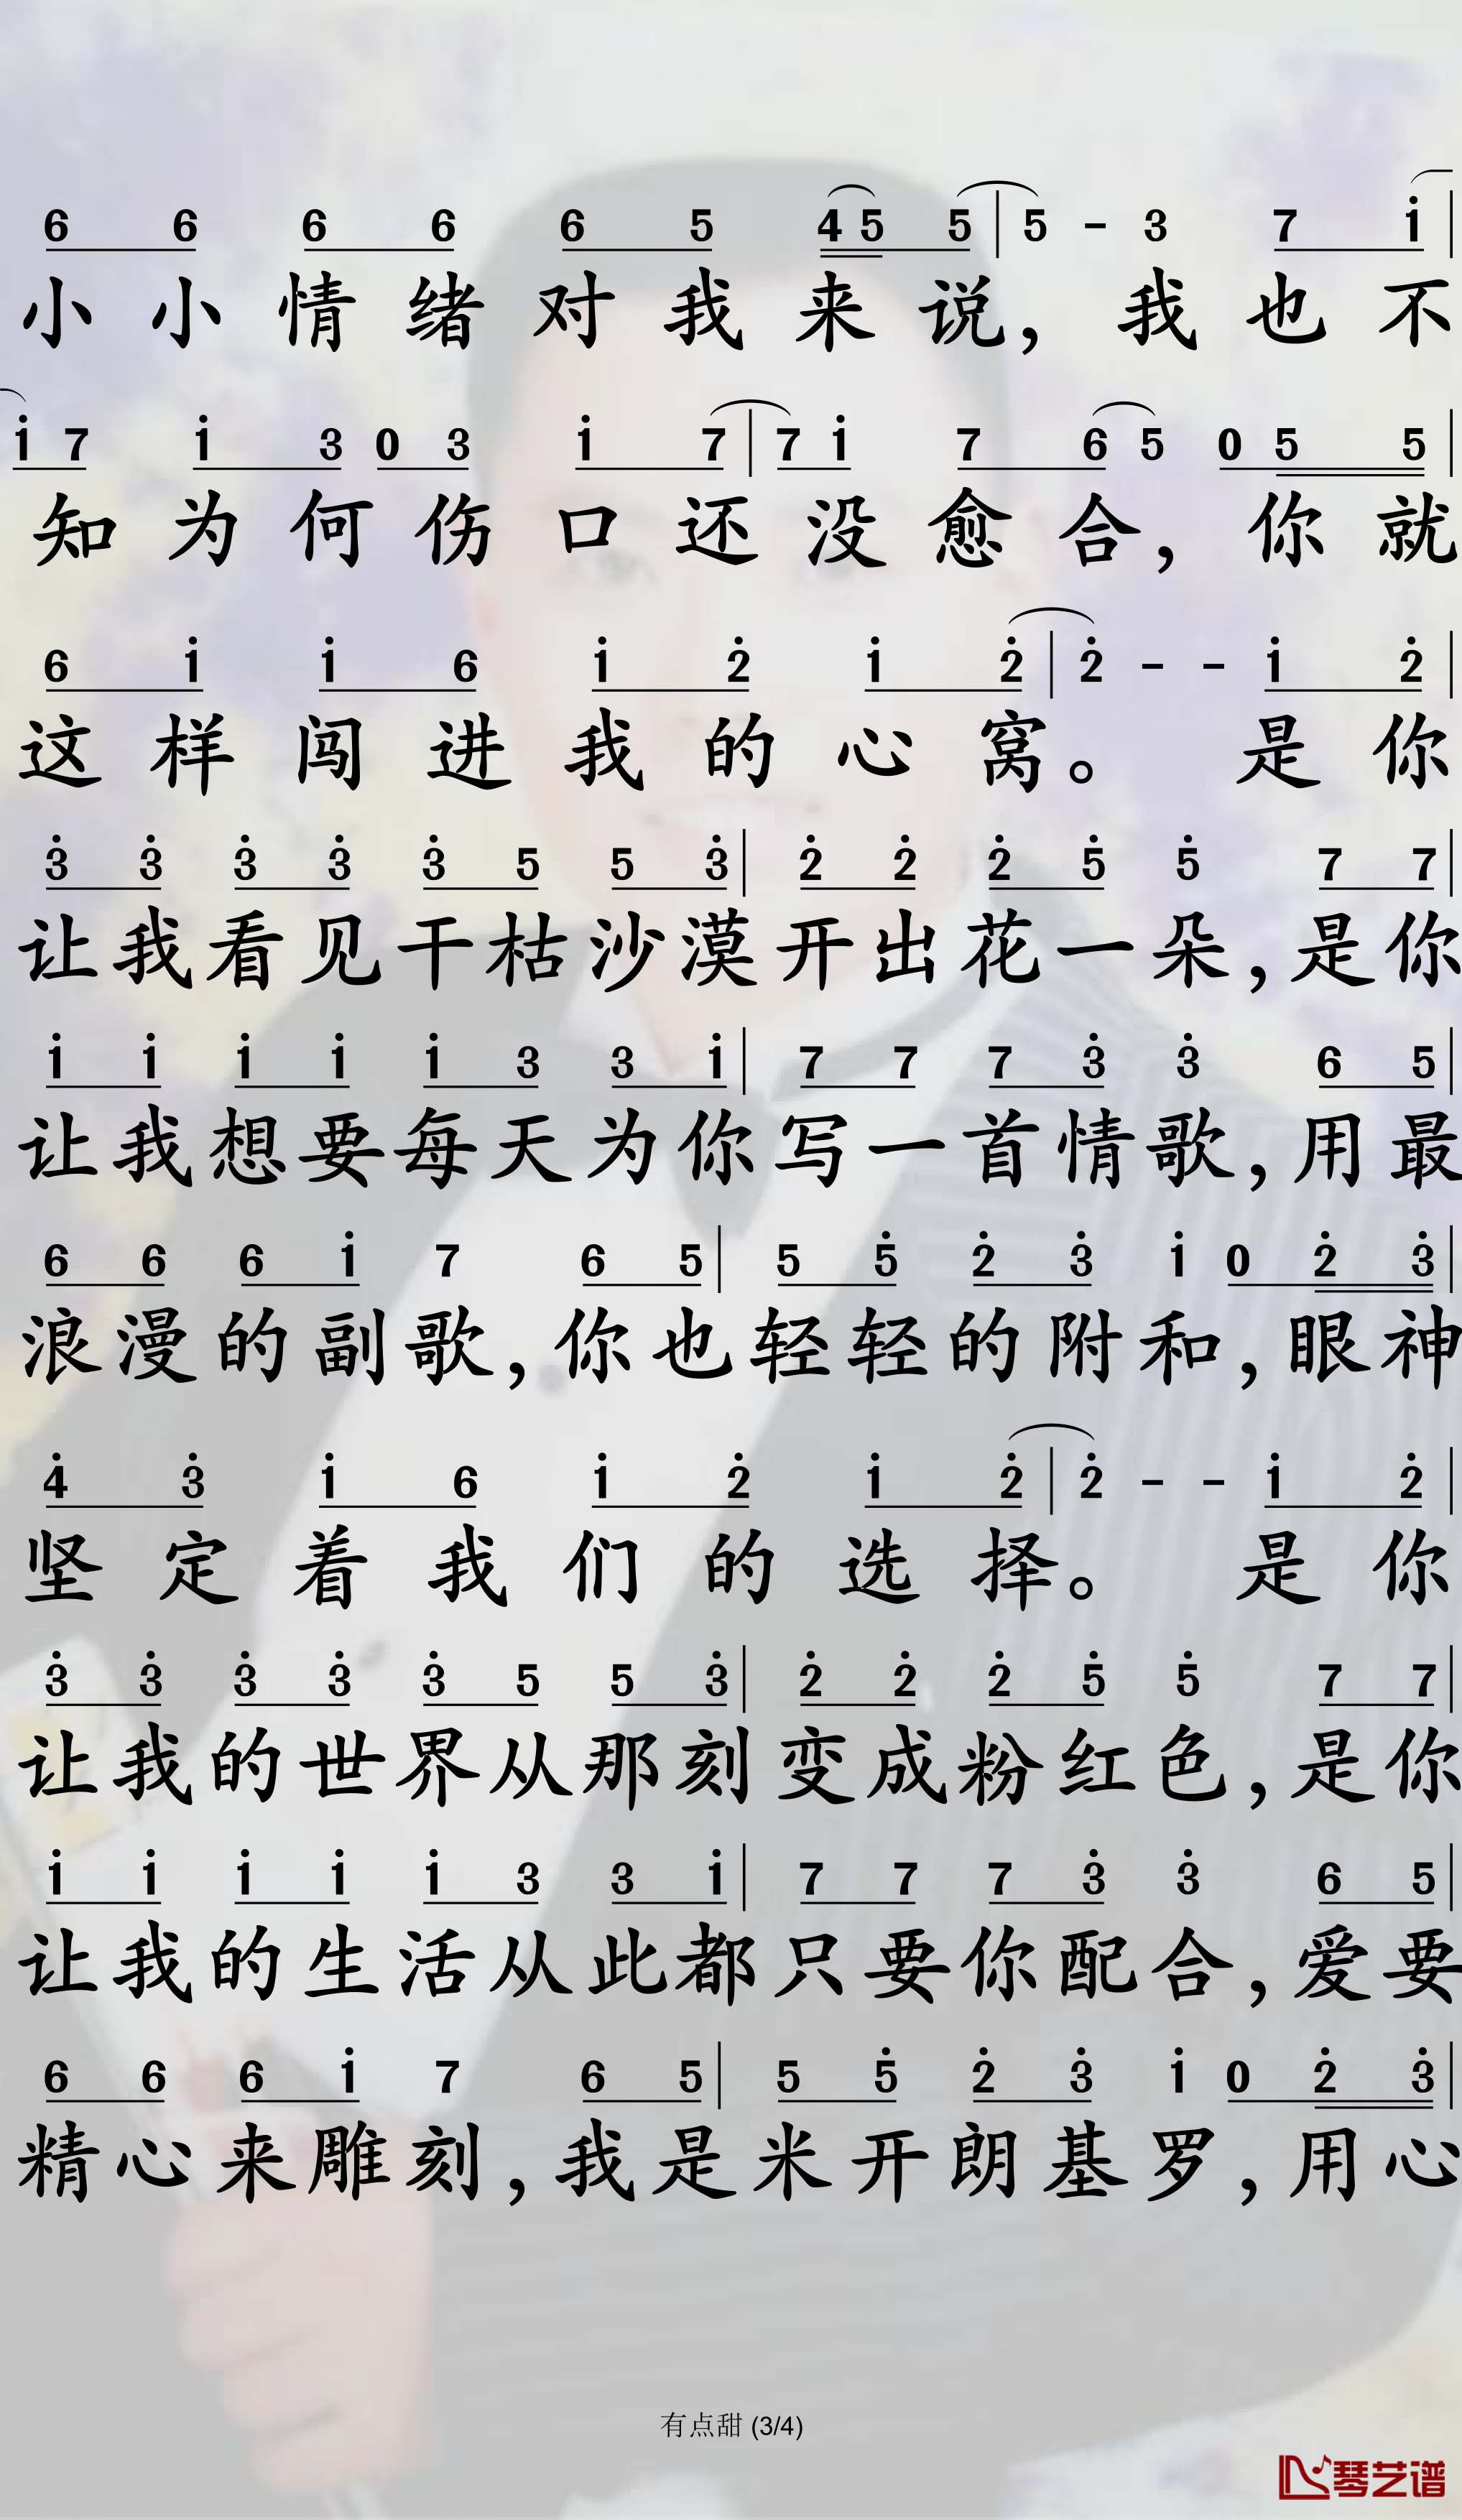 6 6 6 6 6 5 4 5 5 | 5 - 3 7 i |
小小情绪对我来说，我也不
i 7 i 3 0 3 i 7 | 7 i 7 6 5 0 5 5 |
知为何伤口还没愈合，你就
6 i i 6 i 2̇ i 2̇ | 2̇ - - i 2̇ |
这样闯进我的心窝。是你
3̇ 3̇ 3̇ 3̇ 3̇ 5 5 3̇ | 2̇ 2̇ 2̇ 5̇ 5̇ 7 7 |
让我看见干枯沙漠开出花一朵，是你
i i i i i 3 3 i | 7 7 7 3̇ 3̇ 6 5 |
让我想要每天为你写一首情歌，用最
6 6 6 i 7 6 5 | 5 5̇ 2̇ 3̇ i 0 2̇ 3̇ |
浪漫的副歌，你也轻轻的附和，眼神
4̇ 3̇ i 6 i 2̇ i 2̇ | 2̇ - - i 2̇ |
坚定着我们的选择。是你
3̇ 3̇ 3̇ 3̇ 3̇ 5 5 3̇ | 2̇ 2̇ 2̇ 5̇ 5̇ 7 7 |
让我的世界从那刻变成粉红色，是你
i i i i i 3 3 i | 7 7 7 3̇ 3̇ 6 5 |
让我的生活从此都只要你配合，爱要
6 6 6 i 7 6 5 | 5 5̇ 2̇ 3̇ i 0 2̇ 3̇ |
精心来雕刻，我是米开朗基罗，用心
有点甜 (3/4)
琴艺谱